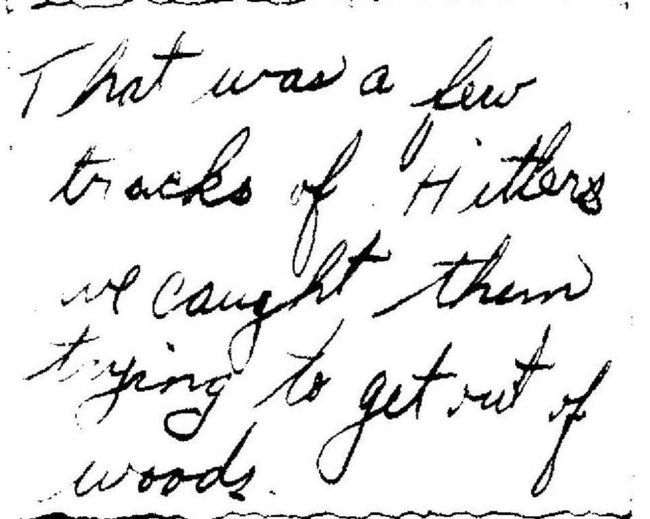 That was a few
tracks of Hitlers
we caught them
trying to get out of
woods.